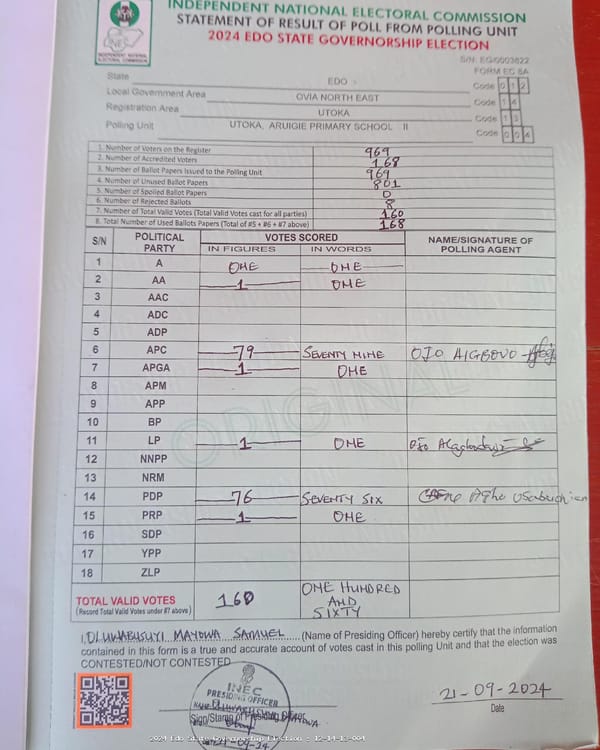 INDEPENDENT NATIONAL ELECTORAL COMMISSION
STATEMENT OF RESULT OF POLL FROM POLLING UNIT
2024 EDO STATE GOVERNORSHIP ELECTION
S/N: EG/0003622
FORM EC 8A
State EDO Code 0 1 2
Local Government Area OVIA NORTH EAST Code 1 4
Registration Area UTOKA Code 1 3
Polling Unit UTOKA, ARUIGIE PRIMARY SCHOOL II Code 0 0 4
1. Number of Voters on the Register 969
2. Number of Accredited Voters 168
3. Number of Ballot Papers Issued to the Polling Unit 969
4. Number of Unused Ballot Papers 801
5. Number of Spoiled Ballot Papers 0
6. Number of Rejected Ballots 8
7. Number of Total Valid Votes (Total Valid Votes cast for all parties) 160
8. Total Number of Used Ballots Papers (Total of #5 + #6 + #7 above) 168
S/N POLITICAL PARTY VOTES SCORED NAME/SIGNATURE OF POLLING AGENT
IN FIGURES IN WORDS
1 A ONE ONE
2 AA 1 ONE
3 AAC
4 ADC
5 ADP
6 APC 79 SEVENTY NINE OJO AIGBOVO
7 APGA 1 ONE
8 APM
9 APP
10 BP
ORIGINAL
11 LP 1 ONE Ojo
12 NNPP
13 NRM
14 PDP 76 SEVENTY SIX
15 PRP 1 ONE
16 SDP
17 YPP
18 ZLP
TOTAL VALID VOTES 160 ONE HUNDRED AND SIXTY
(Record Total Valid Votes under #7 above)
I, OLUWABUSUYI MAYOWA SAMUEL (Name of Presiding Officer) hereby certify that the information
contained in this form is a true and accurate account of votes cast in this polling Unit and that the election was
CONTESTED/NOT CONTESTED
INEC
PRESIDING OFFICER
Sign/Stamp of Presiding Officer
21-09-2024
Date
2024 Edo State Governorship Election : 12-14-13-004